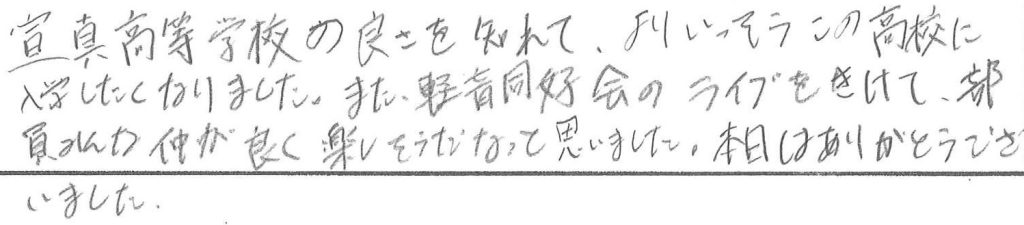 宣真高等学校の良さを知れて、よりいっそうこの高校に
入学したくなりました。また、軽音同好会のライブをきけて、部
員みんな仲が良く楽しそうだなって思いました。本日はありがとうござ
いました.